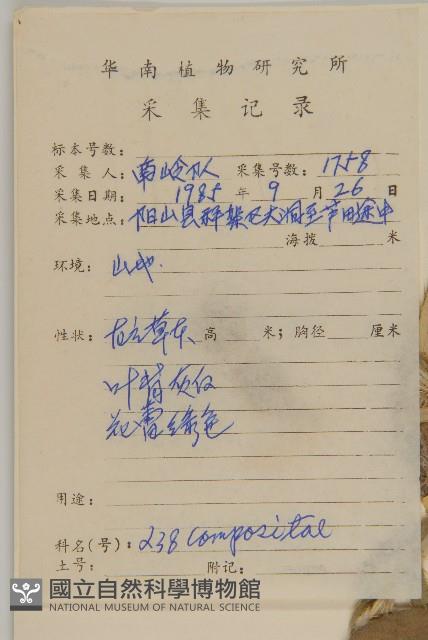 华南植物研究所
采集记录
标本号数：
采集人：南岭队 采集号数：1758
采集日期：1985年9月26日
采集地点：阳山县秤架区大洞至茅田途中
海拨 米
环境：山地.
性状：直立草本 高 米；胸径 厘米
叶背灰白
花蕾绿色
用途：
科名(号)：238 Compositae
土号： 附记：
國立自然科學博物館
NATIONAL MUSEUM OF NATURAL SCIENCE